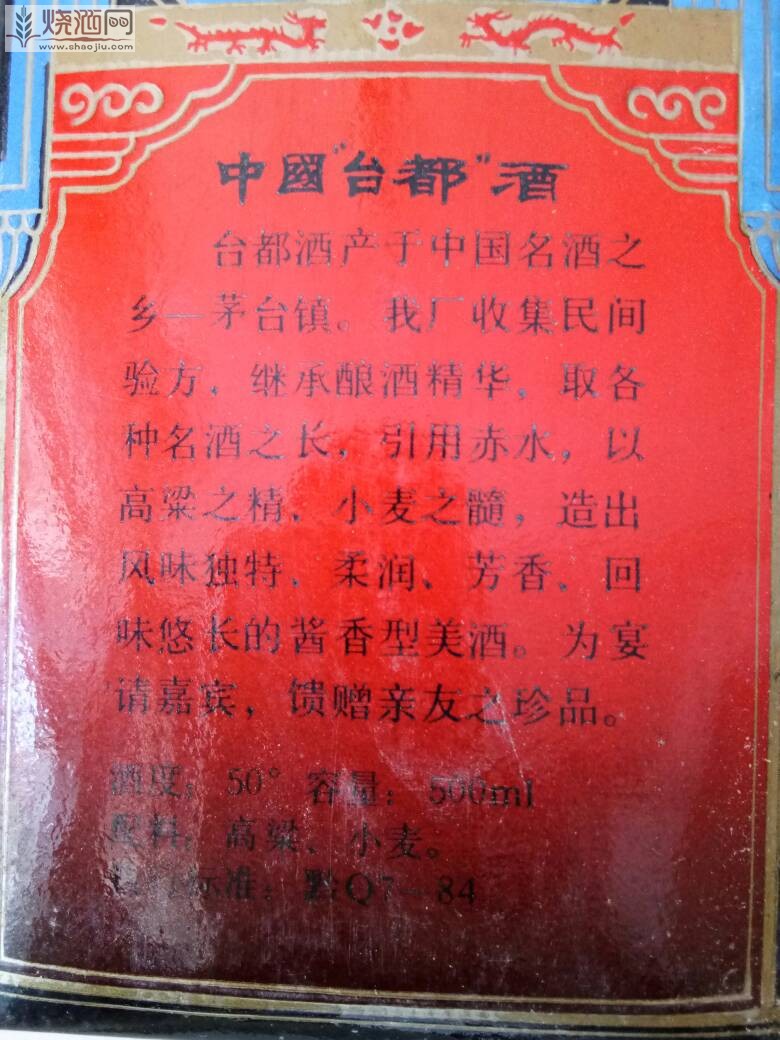 烧酒网
www.shaojiu.com
中國"台都"酒
台都酒产于中国名酒之
乡—茅台镇。我厂收集民间
验方、继承酿酒精华，取各
种名酒之长，引用赤水，以
高粱之精、小麦之髓，造出
风味独特、柔润、芳香、回
味悠长的酱香型美酒。为宴
请嘉宾，馈赠亲友之珍品。
酒度：50° 容量：500ml
配料：高粱、小麦。
标准：黔Q7—84